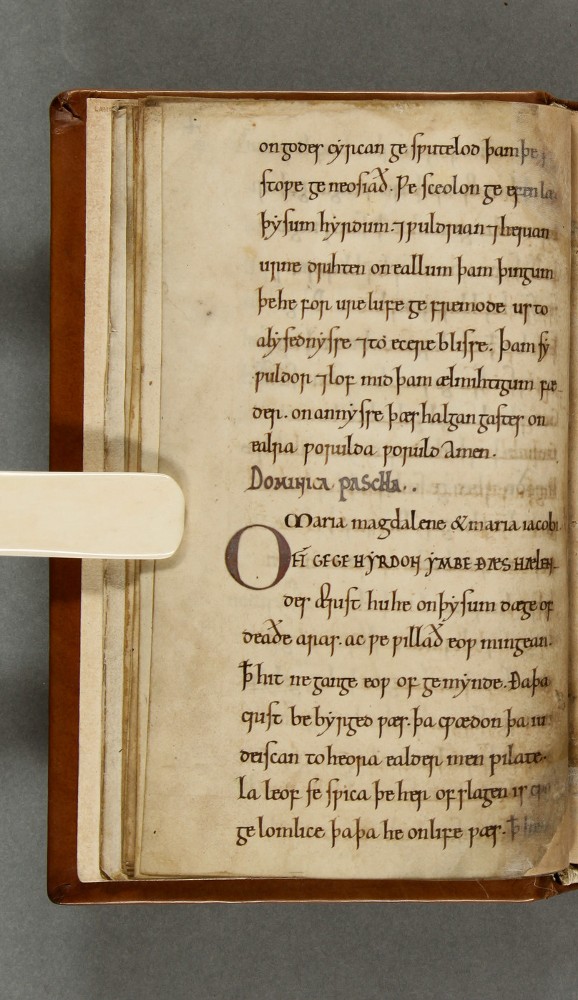 on godes cyrican ge sputelod þam þe
stope ge neosiað. Ƿe sceolon ge efenlæ
þysum hyrdum. ⁊ ƿuldrian ⁊ herian
urne drihten on eallum þam þingum
þe he for ure lufe ge fremode. us to
alysednysse ⁊ to ecere blisse. þam sy
ƿuldor ⁊ lof mid þam ælmihtigum fæ
der. on annysse þæs halgan gastes on
ealra ƿorulda ƿoruld Amen.
Dominica pascha..
Maria magdalene & maria iacobi
Oft ge gehyrdon ymbe ðæs hælen
der crist hu he on þysum dæge of
deaðe aras. ac ƿe ƿillað eoƿ mingean.
ꝥ hit ne gange eoƿ of gemynde. Ða þa
crist bebyrged ƿæs. þa cƿædon þa iu
deiscan to heora ealder men pilate.
La leof se sƿica þe her ofslagen is
gelomlice þa þa he on life ƿæs. ꝥ he